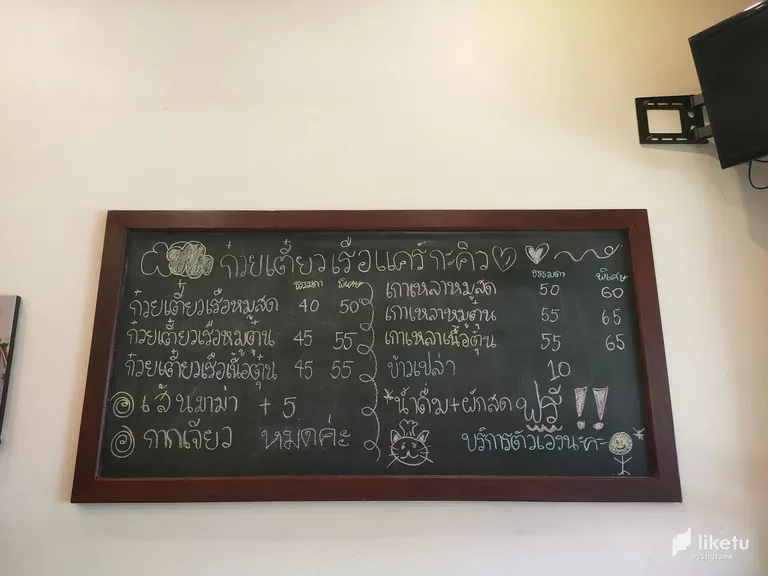 ก๋วยเตี๋ยวเรือแคร์กะคิว
ธรรมดา พิเศษ
ก๋วยเตี๋ยวเรือหมูสด 40 50
ก๋วยเตี๋ยวเรือหมูตุ๋น 45 55
ก๋วยเตี๋ยวเรือเนื้อตุ๋น 45 55
เส้นมาม่า +5
กากเจียว หมดค่ะ
ธรรมดา พิเศษ
เกาเหลาหมูสด 50 60
เกาเหลาหมูตุ๋น 55 65
เกาเหลาเนื้อตุ๋น 55 65
ข้าวเปล่า 10
*น้ำดื่ม+ผักสด ฟรี !!
บริการตัวเองนะคะ
liketu
@yingtaew